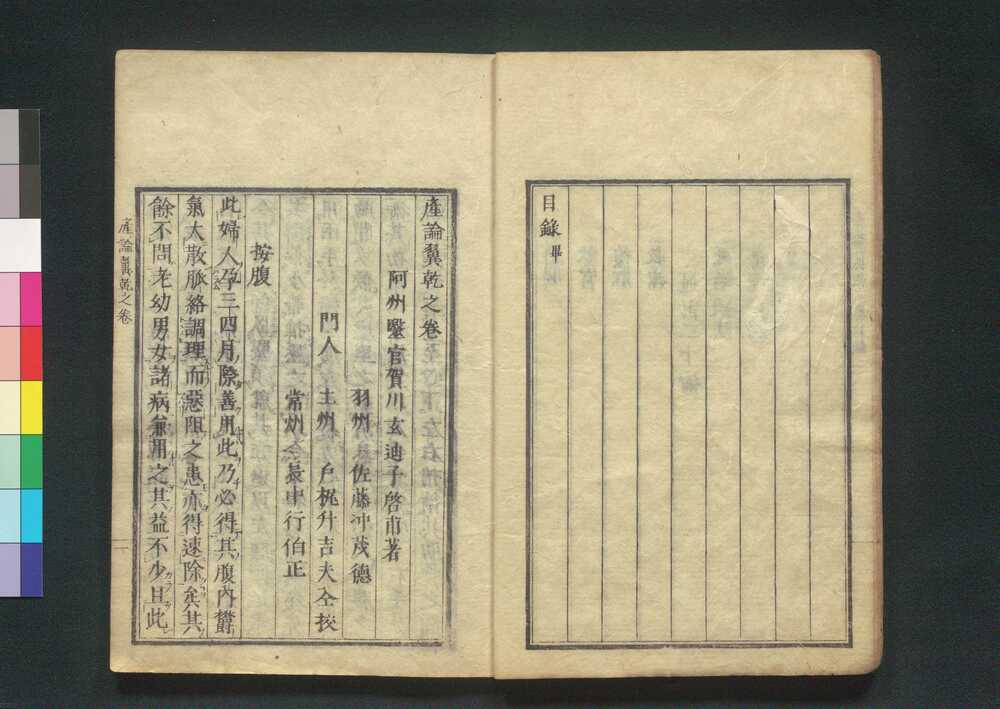 目錄畢
產論翼乾之卷
阿州毉官賀川玄迪子啓甫著
門人
羽州 佐藤冲茂德
土州 戶梶升吉夫仝挍
常州 行伯正
按腹
此婦人孕三四月際善用此乃必得其腹內欝
氣大散脈絡調理而惡阻之患亦得速除矣其
餘不問老幼男女諸病兼用之其益不少且此
產論翼乾之卷
一